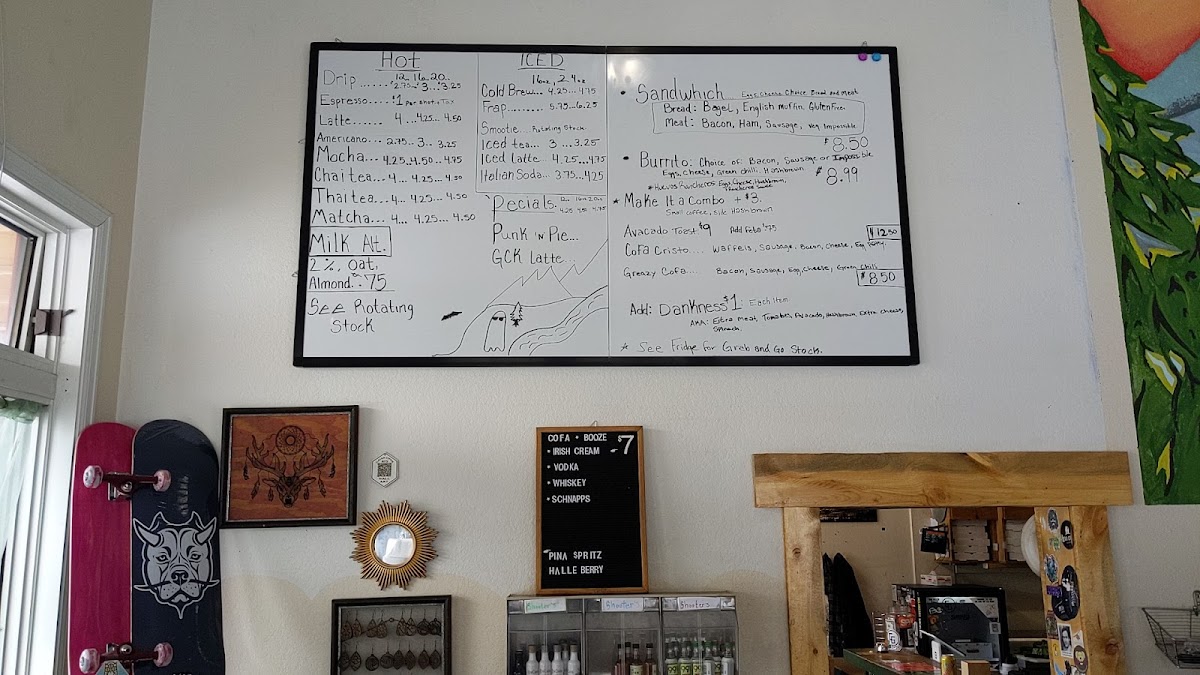 Hot
12 16 20
Drip ...... 2.75 ... $3 ... $3.25
Espresso.... $1 Per Shot + Tax
Latte...... 4 ...4.25... 4.50
Americano... 2.75... 3... 3.25
Mocha... 4.25..4.50...4.75
Chai tea... 4.... 4.25... 4.50
Thai tea... 4... 4.25... 4.50
Matcha.... 4... 4.25... 4.50
Milk Alt.
2%, Oat,
Almond.. .75
See Rotating
Stock
ICED
16oz, 24oz
Cold Brew... 4.25 ...4.75
Frap......... 5.75...6.25
Smootie.... Rotating Stock.
Iced tea... 3 ....3.25
Iced Latte.. 4.25...4.75
Italian Soda... 3.75...4.25
Specials. 12oz 16oz 20oz
4.25 4.50 4.75
Punk 'N Pie...
GCK Latte...
• Sandwhich Egg, Cheese, Choice Bread and meat
Bread: Bagel, English muffin, Gluten Free.
Meat: Bacon, Ham, Sausage, Veg Impossible
$8.50
• Burrito: Choice of: Bacon, Sausage or Impossible
Eggs, Cheese, Green chili, Hashbrown
$8.99
*Huevos Rancheros Egg, Cheese, Hashbrown,
Ranchero Sauce
* Make It a Combo + $3.
Small coffee, side Hashbrown
Avacado Toast $9 Add Feta .75
$12.50
Cofa Cristo.... Waffels, Sausage, Bacon, Cheese, Egg Patty.
Greazy Cofa.... Bacon, Sausage, Egg, Cheese, Green Chili
$8.50
Add: Dankness $1: Each Item
AKA: Extra meat, Tomatoes, Avacado, Hashbrown, Extra Cheese,
Spinach.
* See Fridge for Grab and Go Stock.
COFA • BOOZE
$7
• IRISH CREAM
• VODKA
• WHISKEY
• SCHNAPPS
PINA SPRITZ
HALLE BERRY
Shooters
Shooters
Shooters